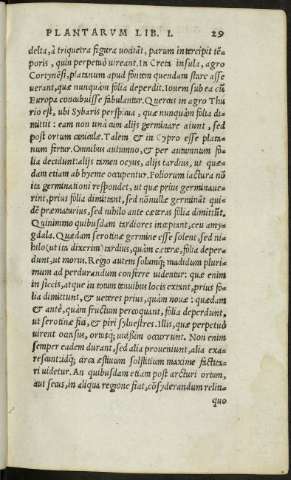 PLANTARVM LIB. I. 29
delta, à triquetra figura uocitāt, parum intercipit tē-
poris, quin perpetuò uireant. In Creta insula, agro
Cortynēsi, platanum apud fontem quendam stare asse
uerant, quæ nunquàm folia deperdit. Iouem sub ea cū
Europa concubuisse fabulantur. Quercus in agro Thu
rio est, ubi Sybaris perspicua, quæ nunquàm folia di-
mittit: eam non unà cum alijs germinare aiunt, sed
post ortum caniculæ. Talem & in Cypro esse plata-
num fertur. Omnibus autumno, & per autumnum fo-
lia decidunt: alijs tamen ocyus, alijs tardius, ut quæ-
dam etiam ab hyeme occupentur. Foliorum iactura nō
ita germinationi respondet, ut quæ prius germinaue-
rint, prius folia dimittant, sed nōnulla germināt qui-
dē præmaturius, sed nihilo ante cæteras folia dimittūt.
Quinimmo quibusdam tardiores incipiant, ceu amy-
gdala. Quædam serotinæ germine esse solent, sed ni-
hilo (ut ita dixerim) tardius, quàm cæteræ, folia deper-
dunt, ut morus. Regio autem solumq́; madidum pluri-
mum ad perdurandum conferre uidentur: quæ enim
in siccis, atque in totum tenuibus locis extent, prius fo-
lia dimittunt, & ueteres prius, quàm nouæ: quædam
& antè, quàm fructum percoquant, folia deperdunt,
ut serotinæ fici, & piri syluestres. Illis, quæ perpetuò
uirent casus, ortusq́; uicissim occurrunt. Non enim
semper eadem durant, sed alia proueniunt, alia exa-
rescunt: idq́; circa æstiuum solstitium maxime factita-
ri uidetur. An quibusdam etiam post arcturi ortum,
aut secus, in aliqua regione fiat, cōsyderandum relin-
quo